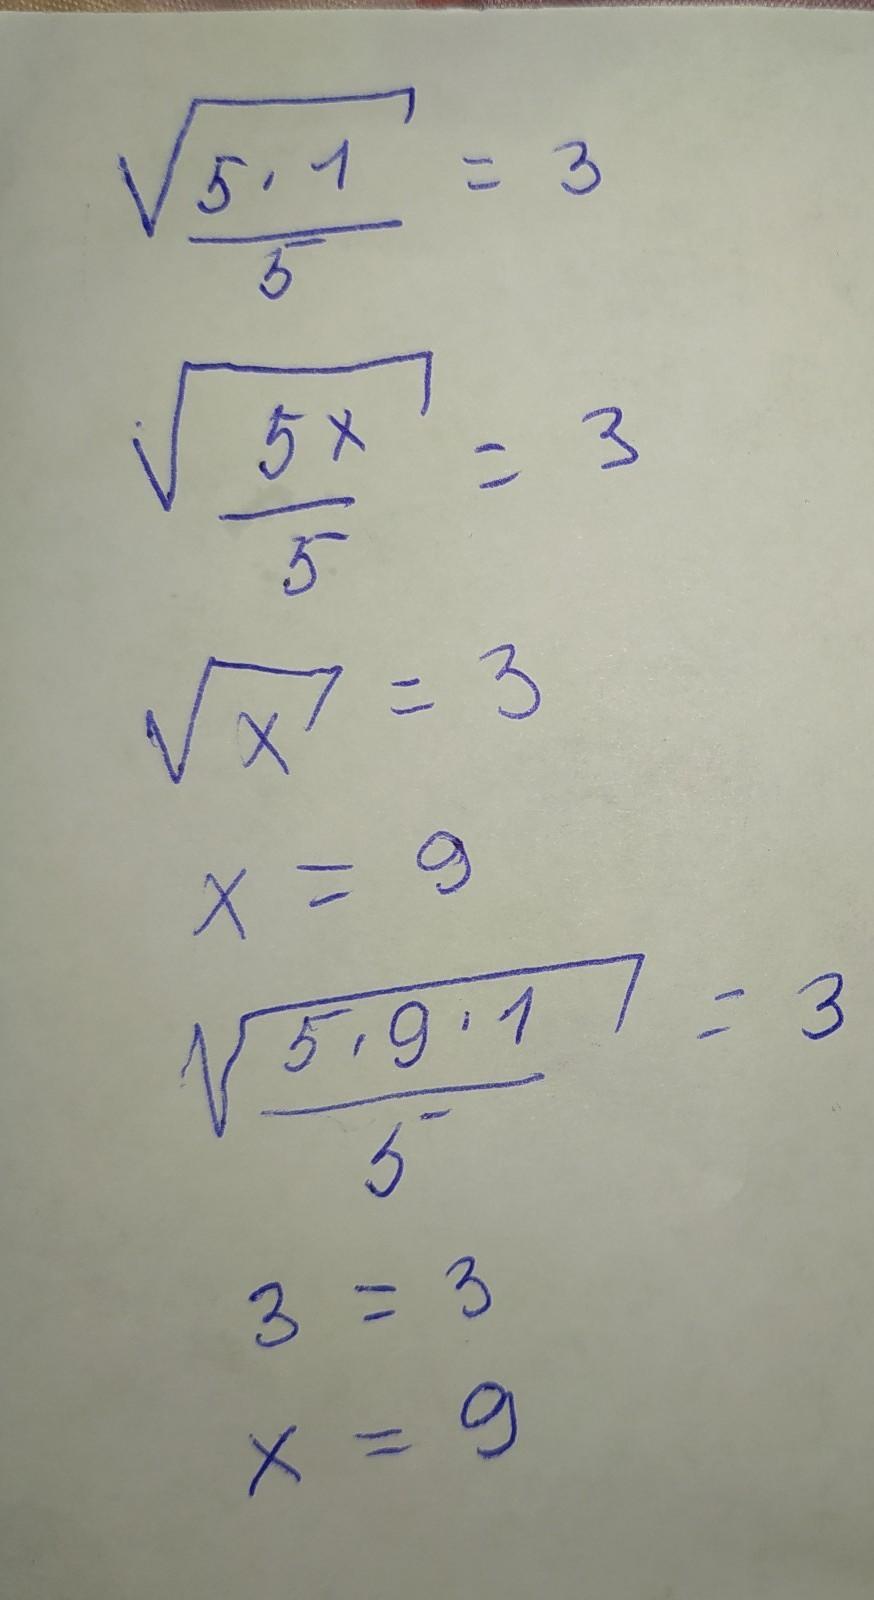 √(5·1/5) = 3
√(5x/5) = 3
√x = 3
x = 9
√(5·9·1/5) = 3
3 = 3
x = 9